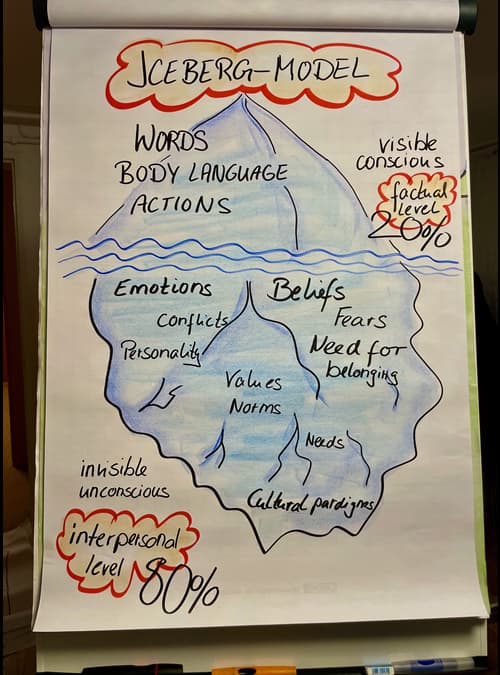 ICEBERG-MODEL
WORDS
BODY LANGUAGE
ACTIONS
visible
conscious
factual
level
20%
Emotions
Beliefs
Conflicts
Fears
Personality
Need for
belonging
Values
Norms
Needs
Cultural pardigms
invisible
unconscious
interpersonal
level
80%